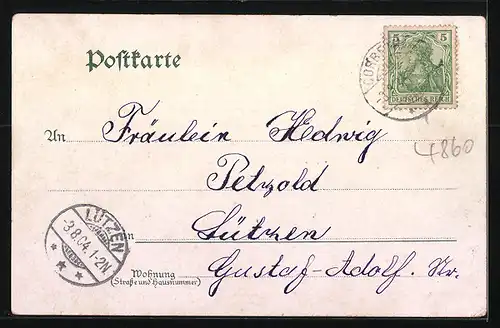 Postkarte
5 5
DEUTSCHES REICH
An Fräulein Hedwig
4860
Petzold
in Lützen
LÜTZEN
3.8.04.1-2N
Wohnung
(Straße und Hausnummer)
Gustaf-Adolf. Str.